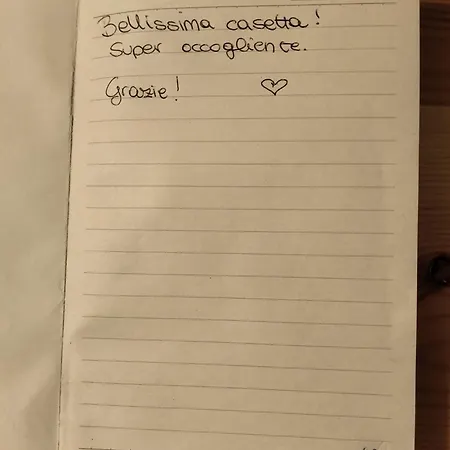 Bellissima casetta!
Super accogliente.
Grazie! ♡